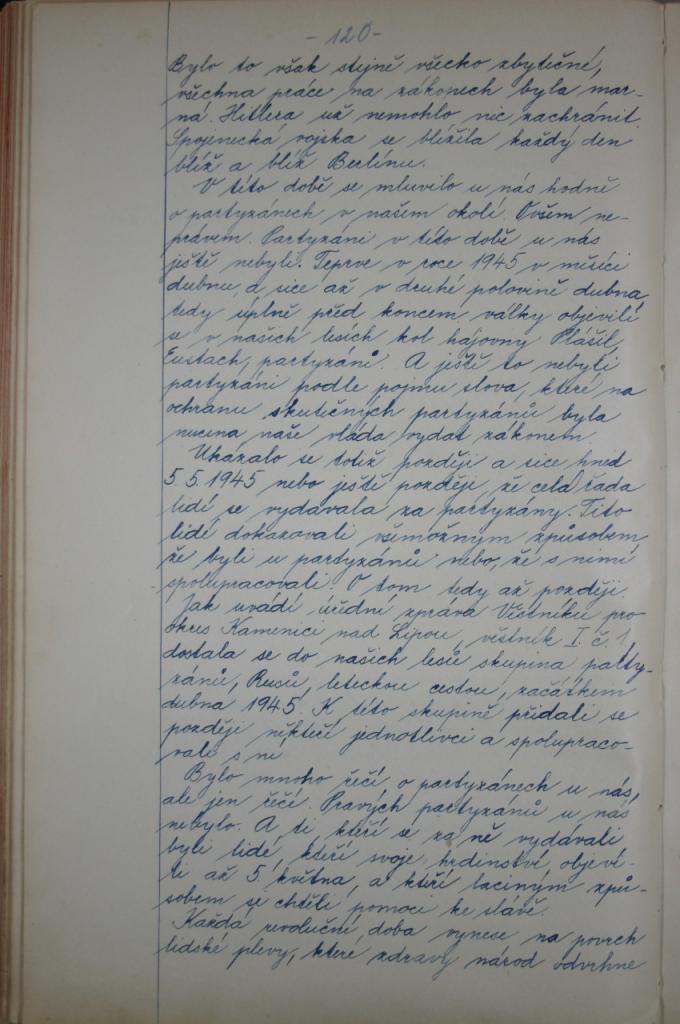 - 120 -
Bylo to však stejně všecko zbytečné,
všechna práce na zákopech byla mar-
ná. Hitlera už nemohlo nic zachránit.
Spojenecká vojska se blížila každý den
blíž a blíž Berlínu.
V této době se mluvilo u nás hodně
o partyzánech v našem okolí. Ovšem ne-
právem. Partyzáni v této době u nás
ještě nebyli. Teprve v roce 1945 v měsíci
dubnu, a sice až v druhé polovině dubna,
tedy úplně před koncem války objevili
se v našich lesích kol hájovny Plášil,
Eustach, partyzáni. A ještě to nebyli
partyzáni podle pojmu slova, které na
ochranu skutečných partyzánů byla
nucena naše vláda vydat zákonem.
Ukázalo se totiž později a sice hned
5.5.1945 nebo ještě později, že celá řada
lidí se vydávala za partyzány. Tito
lidé dokazovali všemožným způsobem,
že byli u partyzánů nebo, že s nimi
spolupracovali. O tom tedy až později.
Jak uvádí úřední zpráva Věstníku pro
okres Kamenici nad Lipou, věstník I. č. 1.
dostala se do našich lesů skupina party-
zánů, Rusů, leteckou cestou, začátkem
dubna 1945. K této skupině přidali se
později někteří jednotlivci a spolupraco-
vali s ní.
Bylo mnoho řečí o partyzánech u nás,
ale jen řečí. Pravých partyzánů u nás
nebylo. A ti, kteří se za ně vydávali
byli lidé, kteří svoje hrdinství objevi-
li až 5. května, a kteří laciným způ-
sobem se chtěli pomoci ke slávě.
Každá revoluční doba vynese na povrch
lidské plevy, které zdravý národ odvrhne